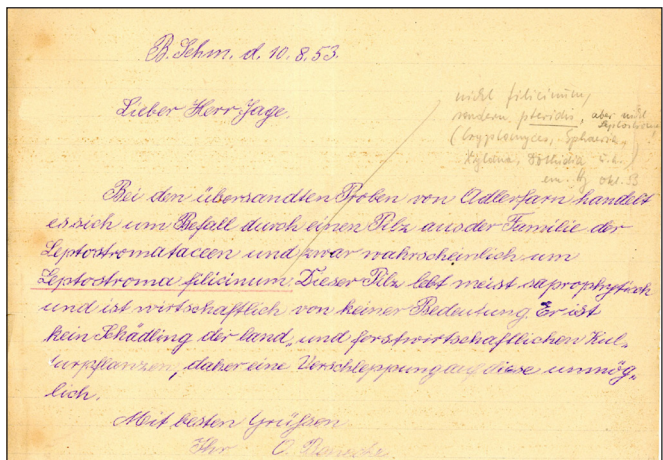 B. Schm. d. 10.8.53.
Lieber Herr Jage.
nicht filicinum,
sondern pteridis, aber nicht
(Cryptomyces, Sphaeria,
Xyloma, Dothidia u.a.)
Okt. 53
Bei den übersandten Proben von Adlerfarn handelt
es sich um Befall durch einen Pilz aus der Familie der
Leptostromataceen und zwar wahrscheinlich um
Leptostroma filicinum. Dieser Pilz lebt meist saprophytisch
und ist wirtschaftlich von keiner Bedeutung. Er ist
kein Schädling der land- und forstwirtschaftlichen Kul-
turpflanzen, daher eine Verschleppung auf diese unmög-
lich.
Mit besten Grüssen
Ihr O.